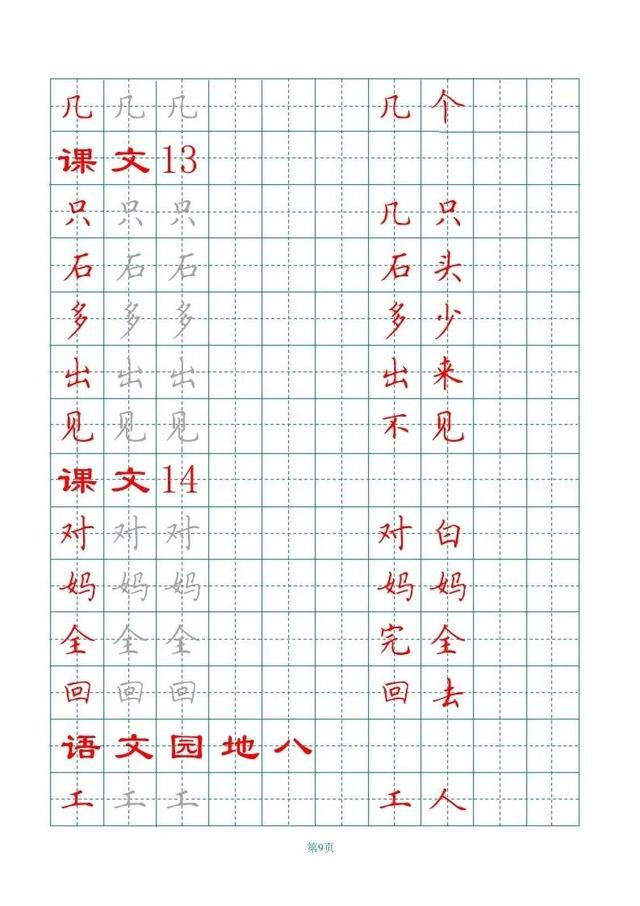 几 几 几 几 个
课 文 13
只 只 只 几 只
石 石 石 石 头
多 多 多 多 少
出 出 出 出 来
见 见 见 不 见
课 文 14
对 对 对 对 白
妈 妈 妈 妈 妈
全 全 全 完 全
回 回 回 回 去
语 文 园 地 八
工 工 工 工 人
第9页